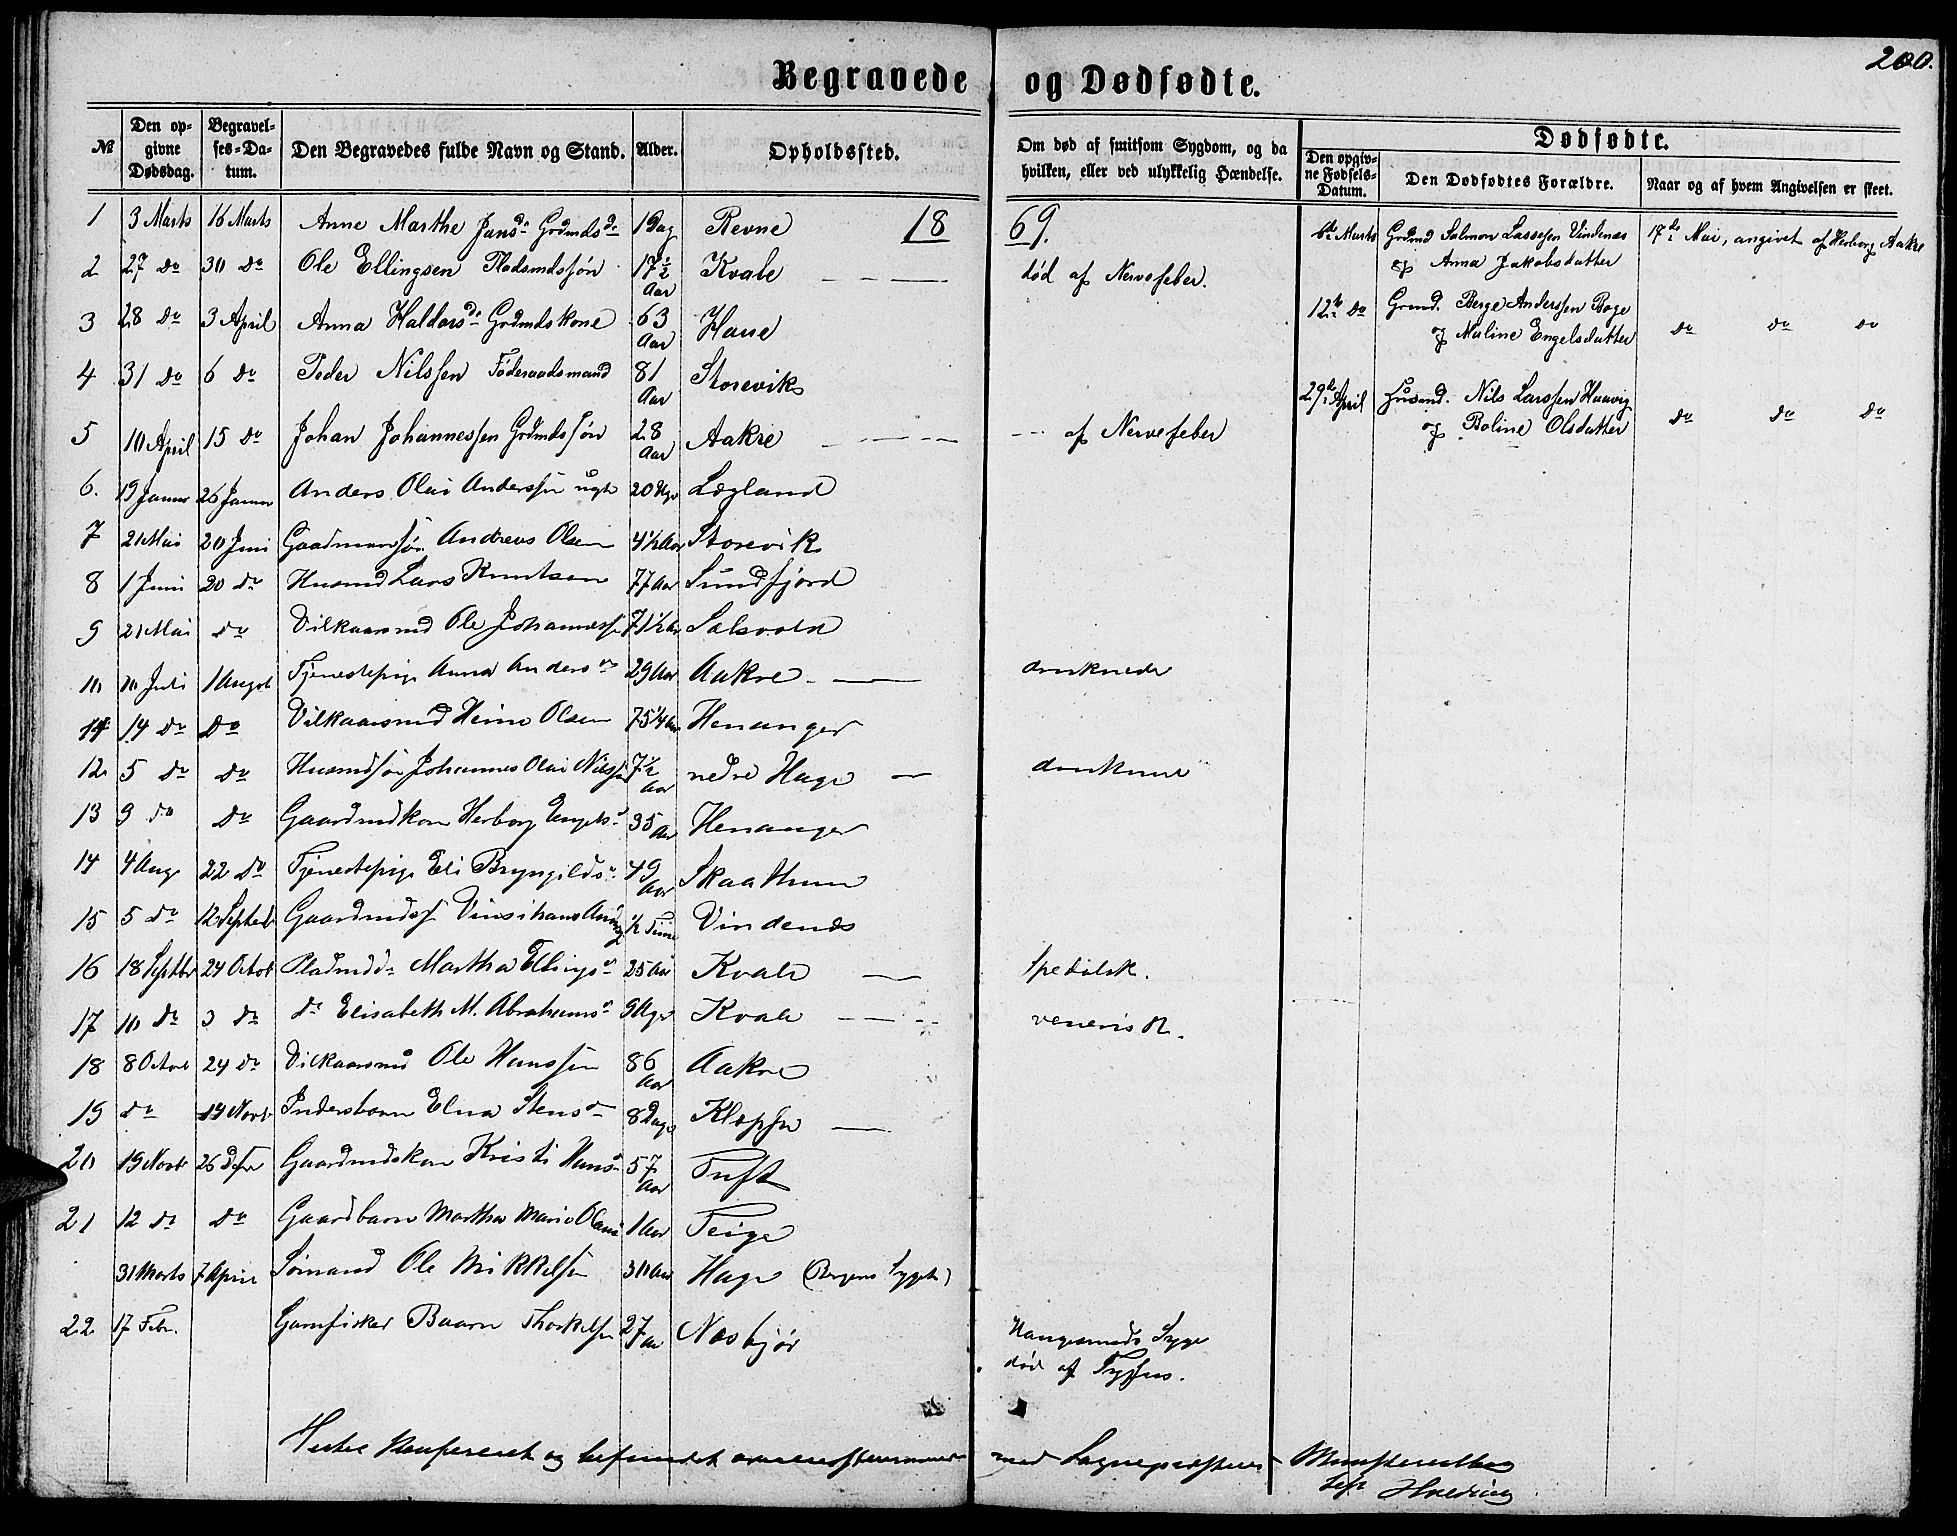 200.
Begravede og Dødfødte.
№ Den opgivne Dødsdag. Begravelses-Datum. Den Begravedes fulde Navn og Stand. Alder. Opholdssted. Om død af smitsom Sygdom, og da hvilken, eller ved ulykkelig Hændelse. Dødfødte. Den opgivne Fødsels-Datum. Den Dødfødtes Forældre. Naar og af hvem Angivelsen er skeet.
1869.
1 3 Marts 16 Marts Anne Marthe Jansd. Grdmdsd. 1 Dag Revne
2 27 do 30 do Ole Ellingsen Pladsmdssøn 17½ Aar Kvale død af Nervefeber.
3 28 do 3 April Anna Haldorsd. Grdmdskone 63 Aar Hane
4 31 do 6 do Peder Nilssen Føderaadsmand 81 Aar Storevik
5 10 April 15 do Johan Johannessen Grdmdssøn 28 Aar Aakre af Nervefeber
6. 19 Januar 26 Januar Anders Olai Anderssen 20 Løgland
7 21 Mai 20 Juni Gaardmanssøn Andreas Olsen 4½ Aar Storevik
8 1 Juni 20 do Husmd Lars Knutsen 77 Aar Sundfjord
9 21 Mai do Vilkaarsmd Ole Johannessen 71½ Aar Salsvold
10 10 Juli 1 August Tjenestepige Anna Andersd. 29 Aar Aakre druknede
11 14 do do Vilkaarsmd Heine Olsen 75¼ Aar Henanger
12 5 do do Husmdsøn Johannes Olai Nilssen 7½ Aar nedre Hage druknet
13 9 do do Gaardmdkone Herborg Engelsd. 35 Aar Henanger
14 4 Aug 22 do Tjenestepige Eli Bryngildsd. 49 Aar Skaathun
15 5 do 12 Septebr Gaardmds ½ Time Vindenes
16 18 Septbr 24 Octob Pladsmdd. Martha Ellingsd. 25 Aar Kvale Spedalsk.
17 10 do 3 do do Elisabeth M. Abrahamsd. 9 Uger Kvale venerisk.
18 8 Octob 24 do Vilkaarsmd Ole Hanssen 86 Aar Aakre
19 do 14 Novb Inderstbarn Elna Stensd. 8 Dage
20 19 Novb 26 Gaardmdskone Kristi Hansd. 57 Aar Tuft
21 12 do do Gaardbarn Martha Marie 1 Aar Teige
31 Marts 7 April Sømand Ole Mikkelsen 30 Aar Hage (Bergens Sygeh)
22 17 Febr. Baarn Thorkelsen 27 Aar Nesbjør Syge død af Tyfus.
6te Marts Grdmd Salmon Lassesen Vindenes og Anna Jakobsdatter 17de Mai, angivet af Herborg Aakre
12te do Grmd. Berge Anderssen Boge og Maline Engelsdatter do do do
29de April Husmd. Nils Larssen Haavig og Boline Olsdatter do do do
og befundet overensstemmende med